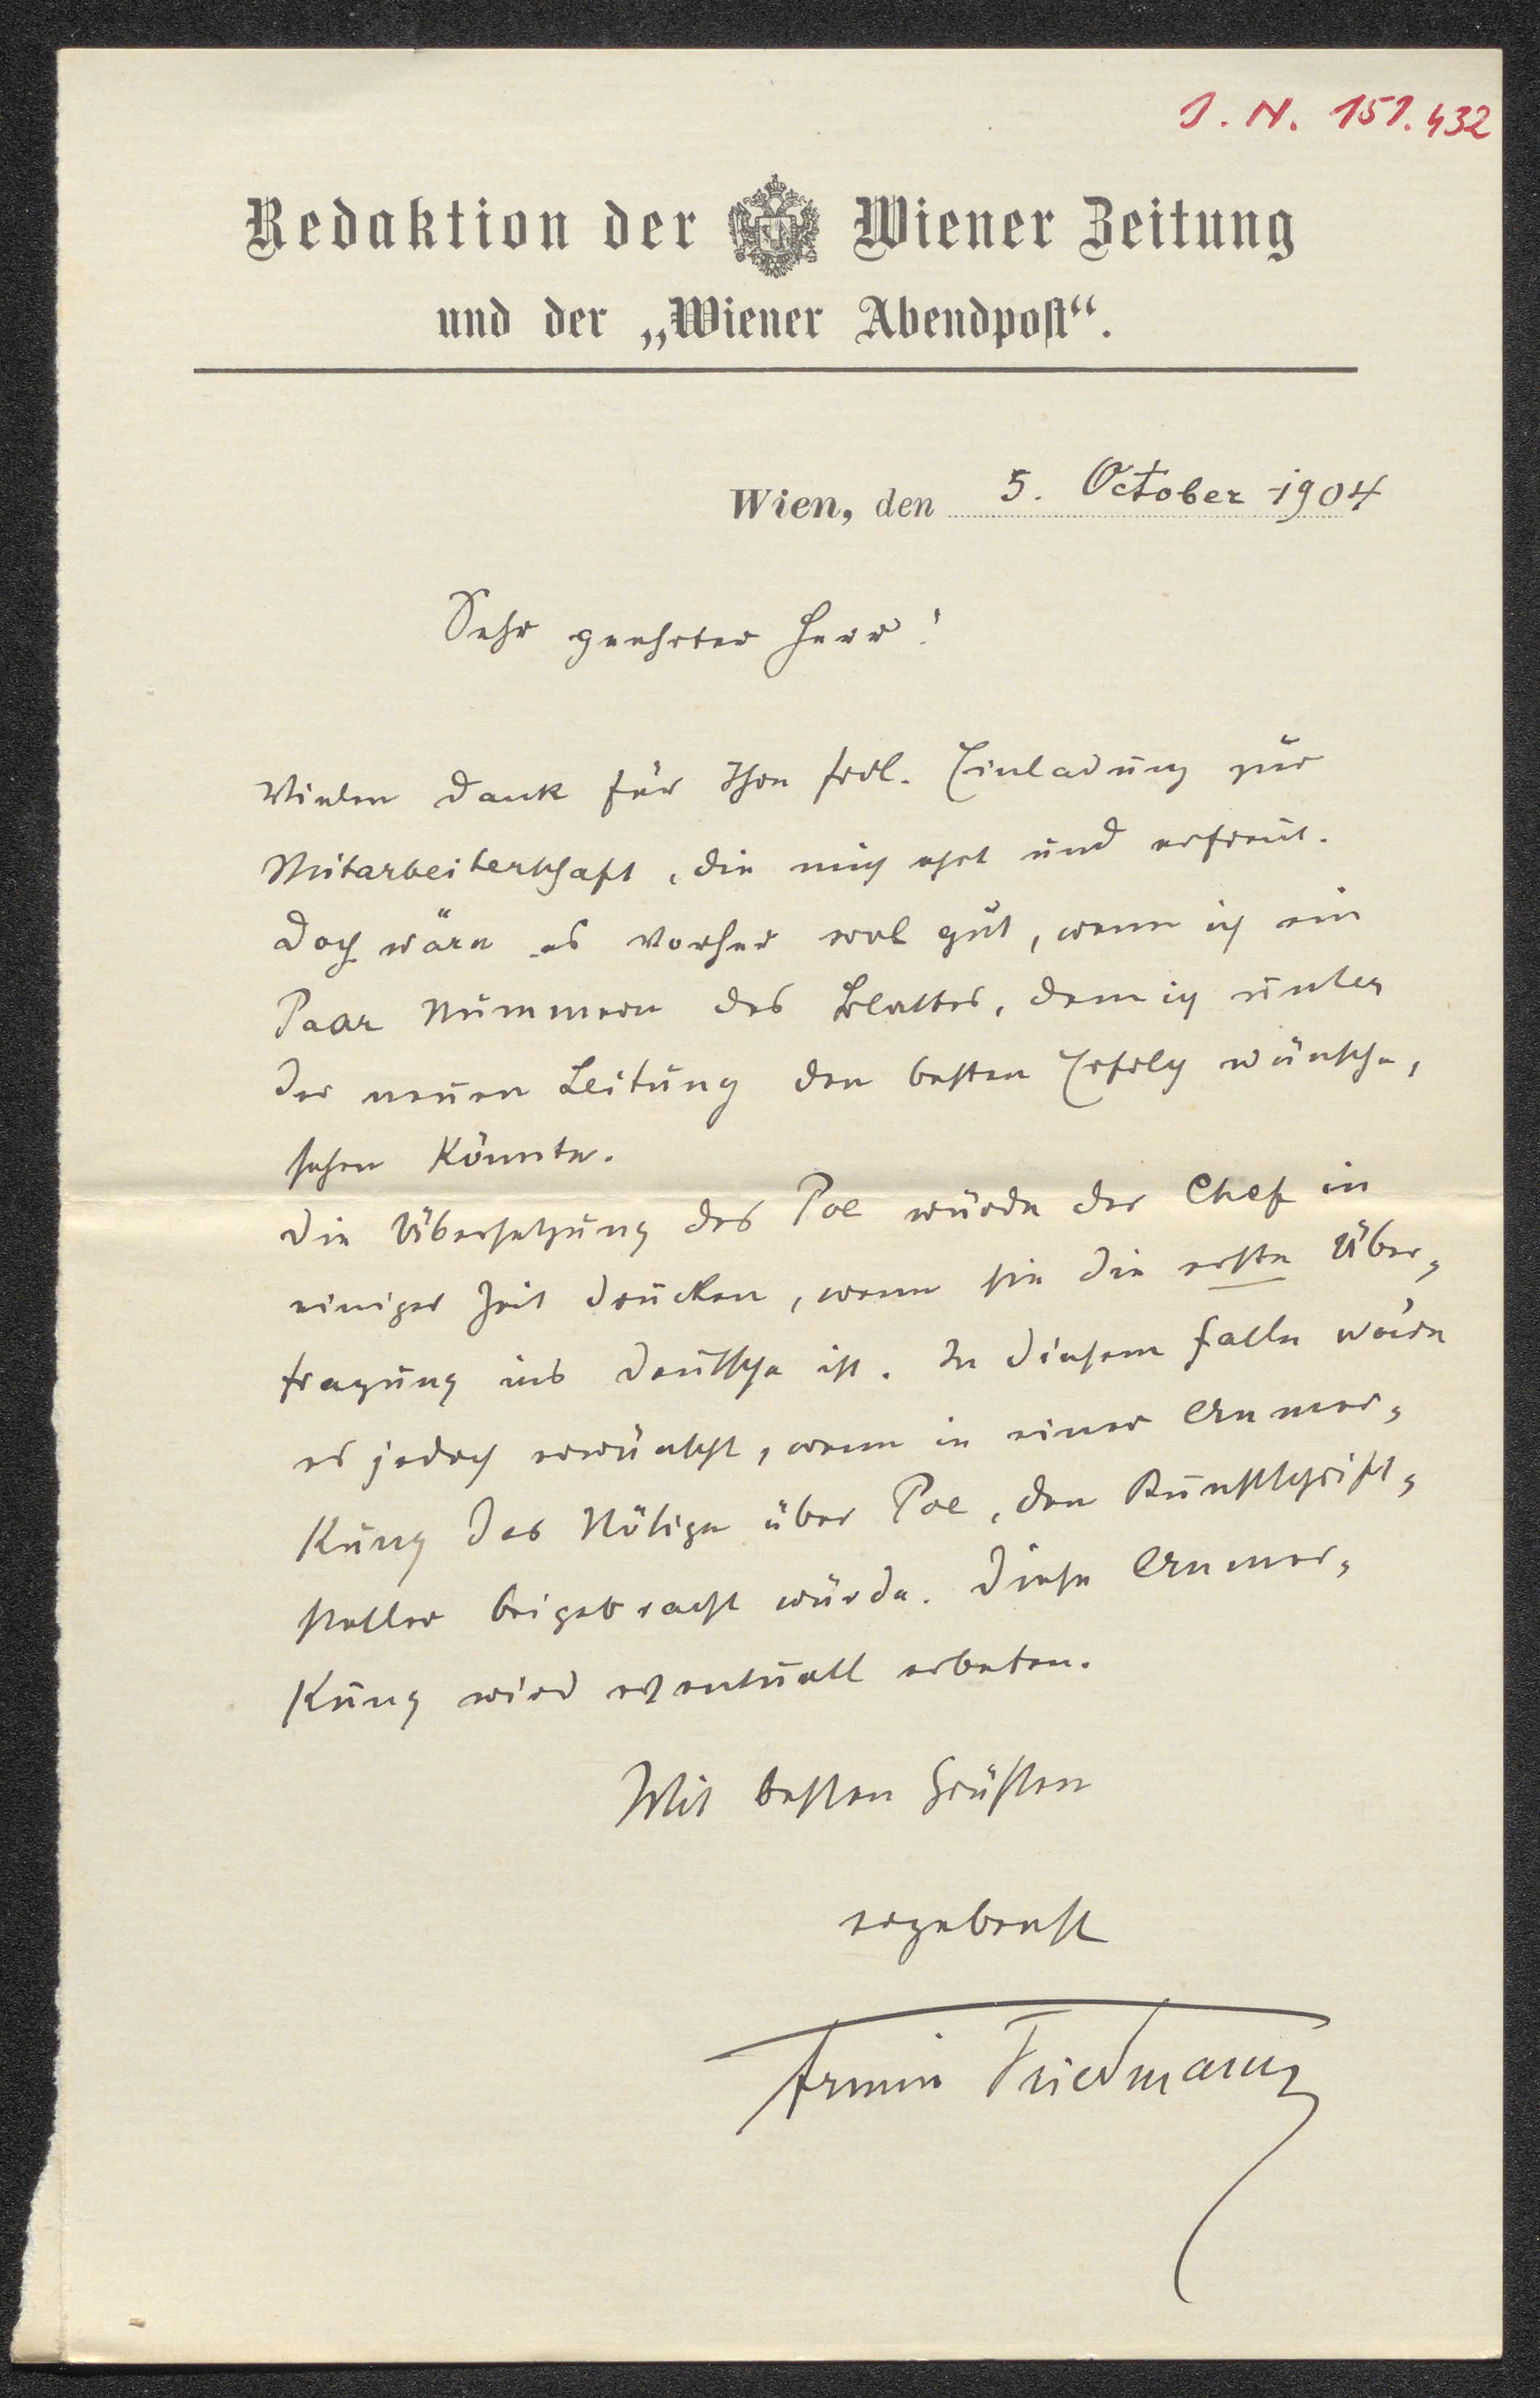 J. N. 151.432
Redaktion der Wiener Zeitung
und der „Wiener Abendpost“.
Wien, den 5. October 1904
Sehr geehrter Herr!
Vielen Dank für Ihre frdl. Einladung zur
Mitarbeiterschaft, die mich ehrt und erfreut.
Doch wäre es vorher wol gut, wenn ich ein
Paar Nummern des Blattes, dem ich unter
der neuen Leitung den besten Erfolg wünsche,
sehen könnte.
Die Übersetzung des Poe würde der Chef in
einiger Zeit drucken, wenn sie die erste Über-
tragung ins Deutsche ist. In diesem Falle wäre
es jedoch erwünscht, wenn in einer Anmer-
kung das Nötige über Poe, den Kunstschrift-
steller beigebracht würde. Diese Anmer-
kung wird eventuell erbeten.
Mit besten Grüßen
ergebenst
Armin Friedmann